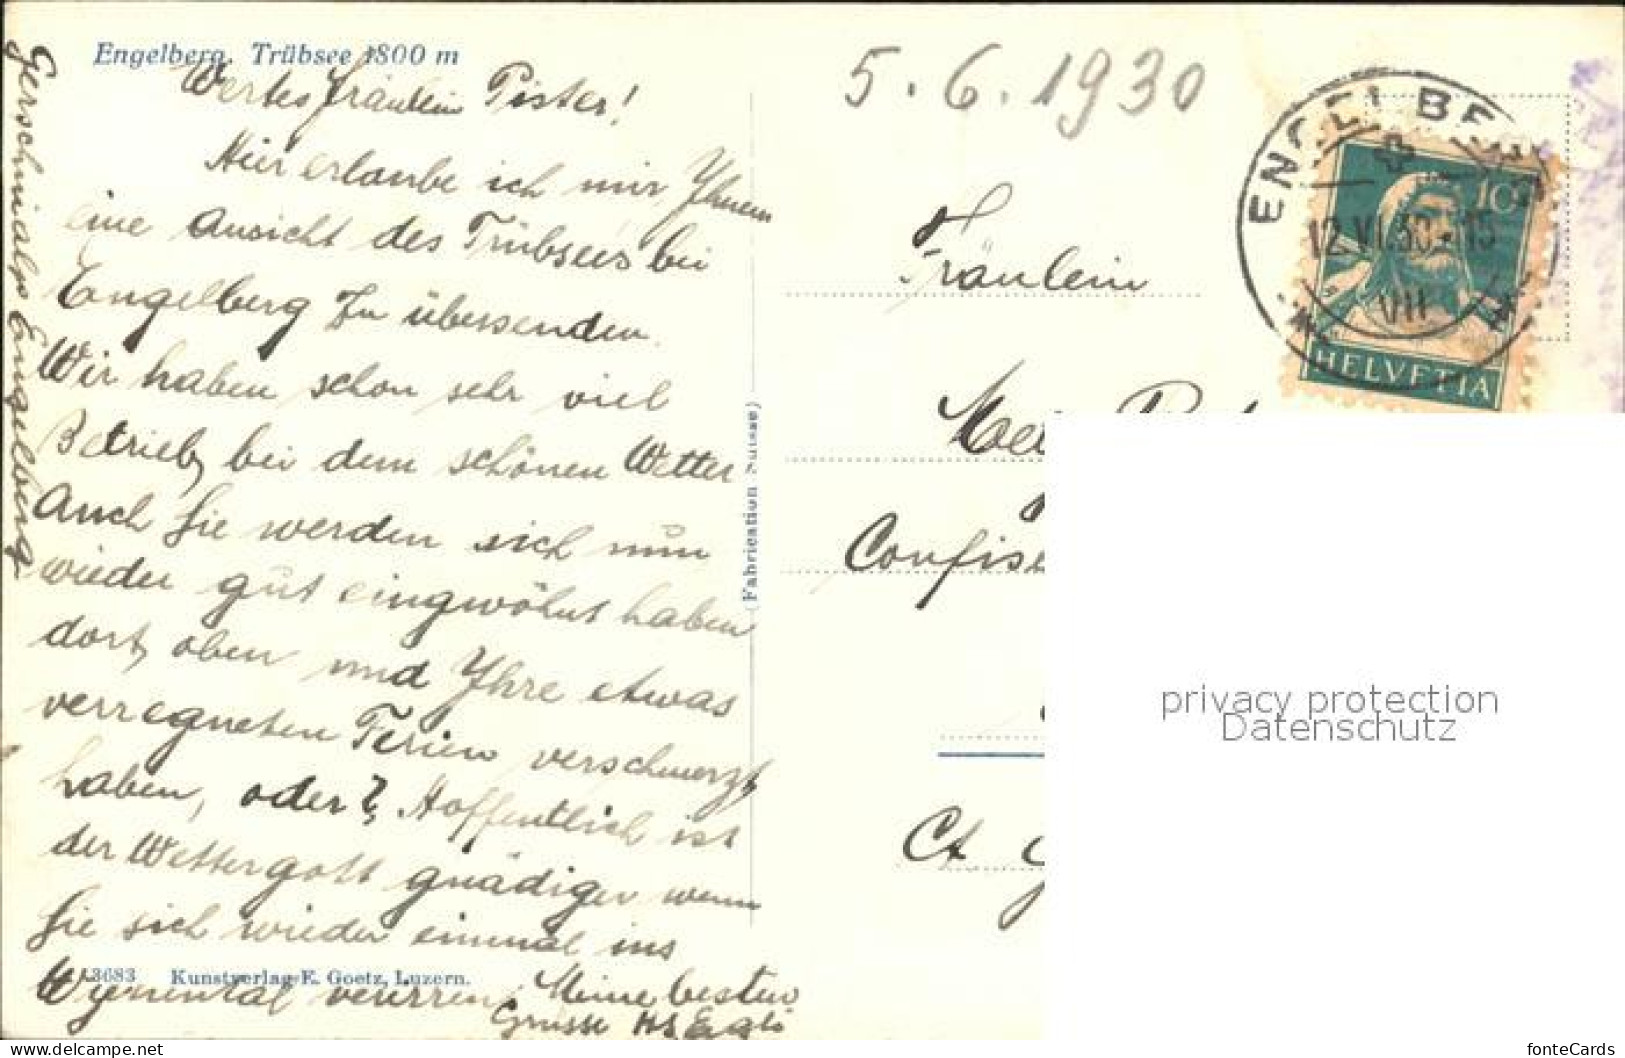 Engelberg. Trübsee 1800 m
5.6.1930
Wertes Fräulein Pister!
Hier erlaube ich mir Ihnen
eine Ansicht des Trübsees bei
Engelberg zu übersenden.
Wir haben schon sehr viel
Betrieb, bei dem schönen Wetter
Auch Sie werden sich nun
wieder gut eingewöhnt haben
dort oben und Ihre etwas
verregneten Ferien verschmerzt
haben, oder? Hoffentlich ist
der Wettergott gnädiger wenn
Sie sich wieder einmal ins
verirren. Meine besten
Grüsse Hs. Egli
Gerschnialp Engelberg
13683 Kunstverlag E. Goetz, Luzern.
(Fabrication Suisse)
ENGELBERG
12.VI.30.-15
VII
10
HELVETIA
Fräulein
Confise
Ct. G
privacy protection
Datenschutz
www.delcampe.net
fonteCards